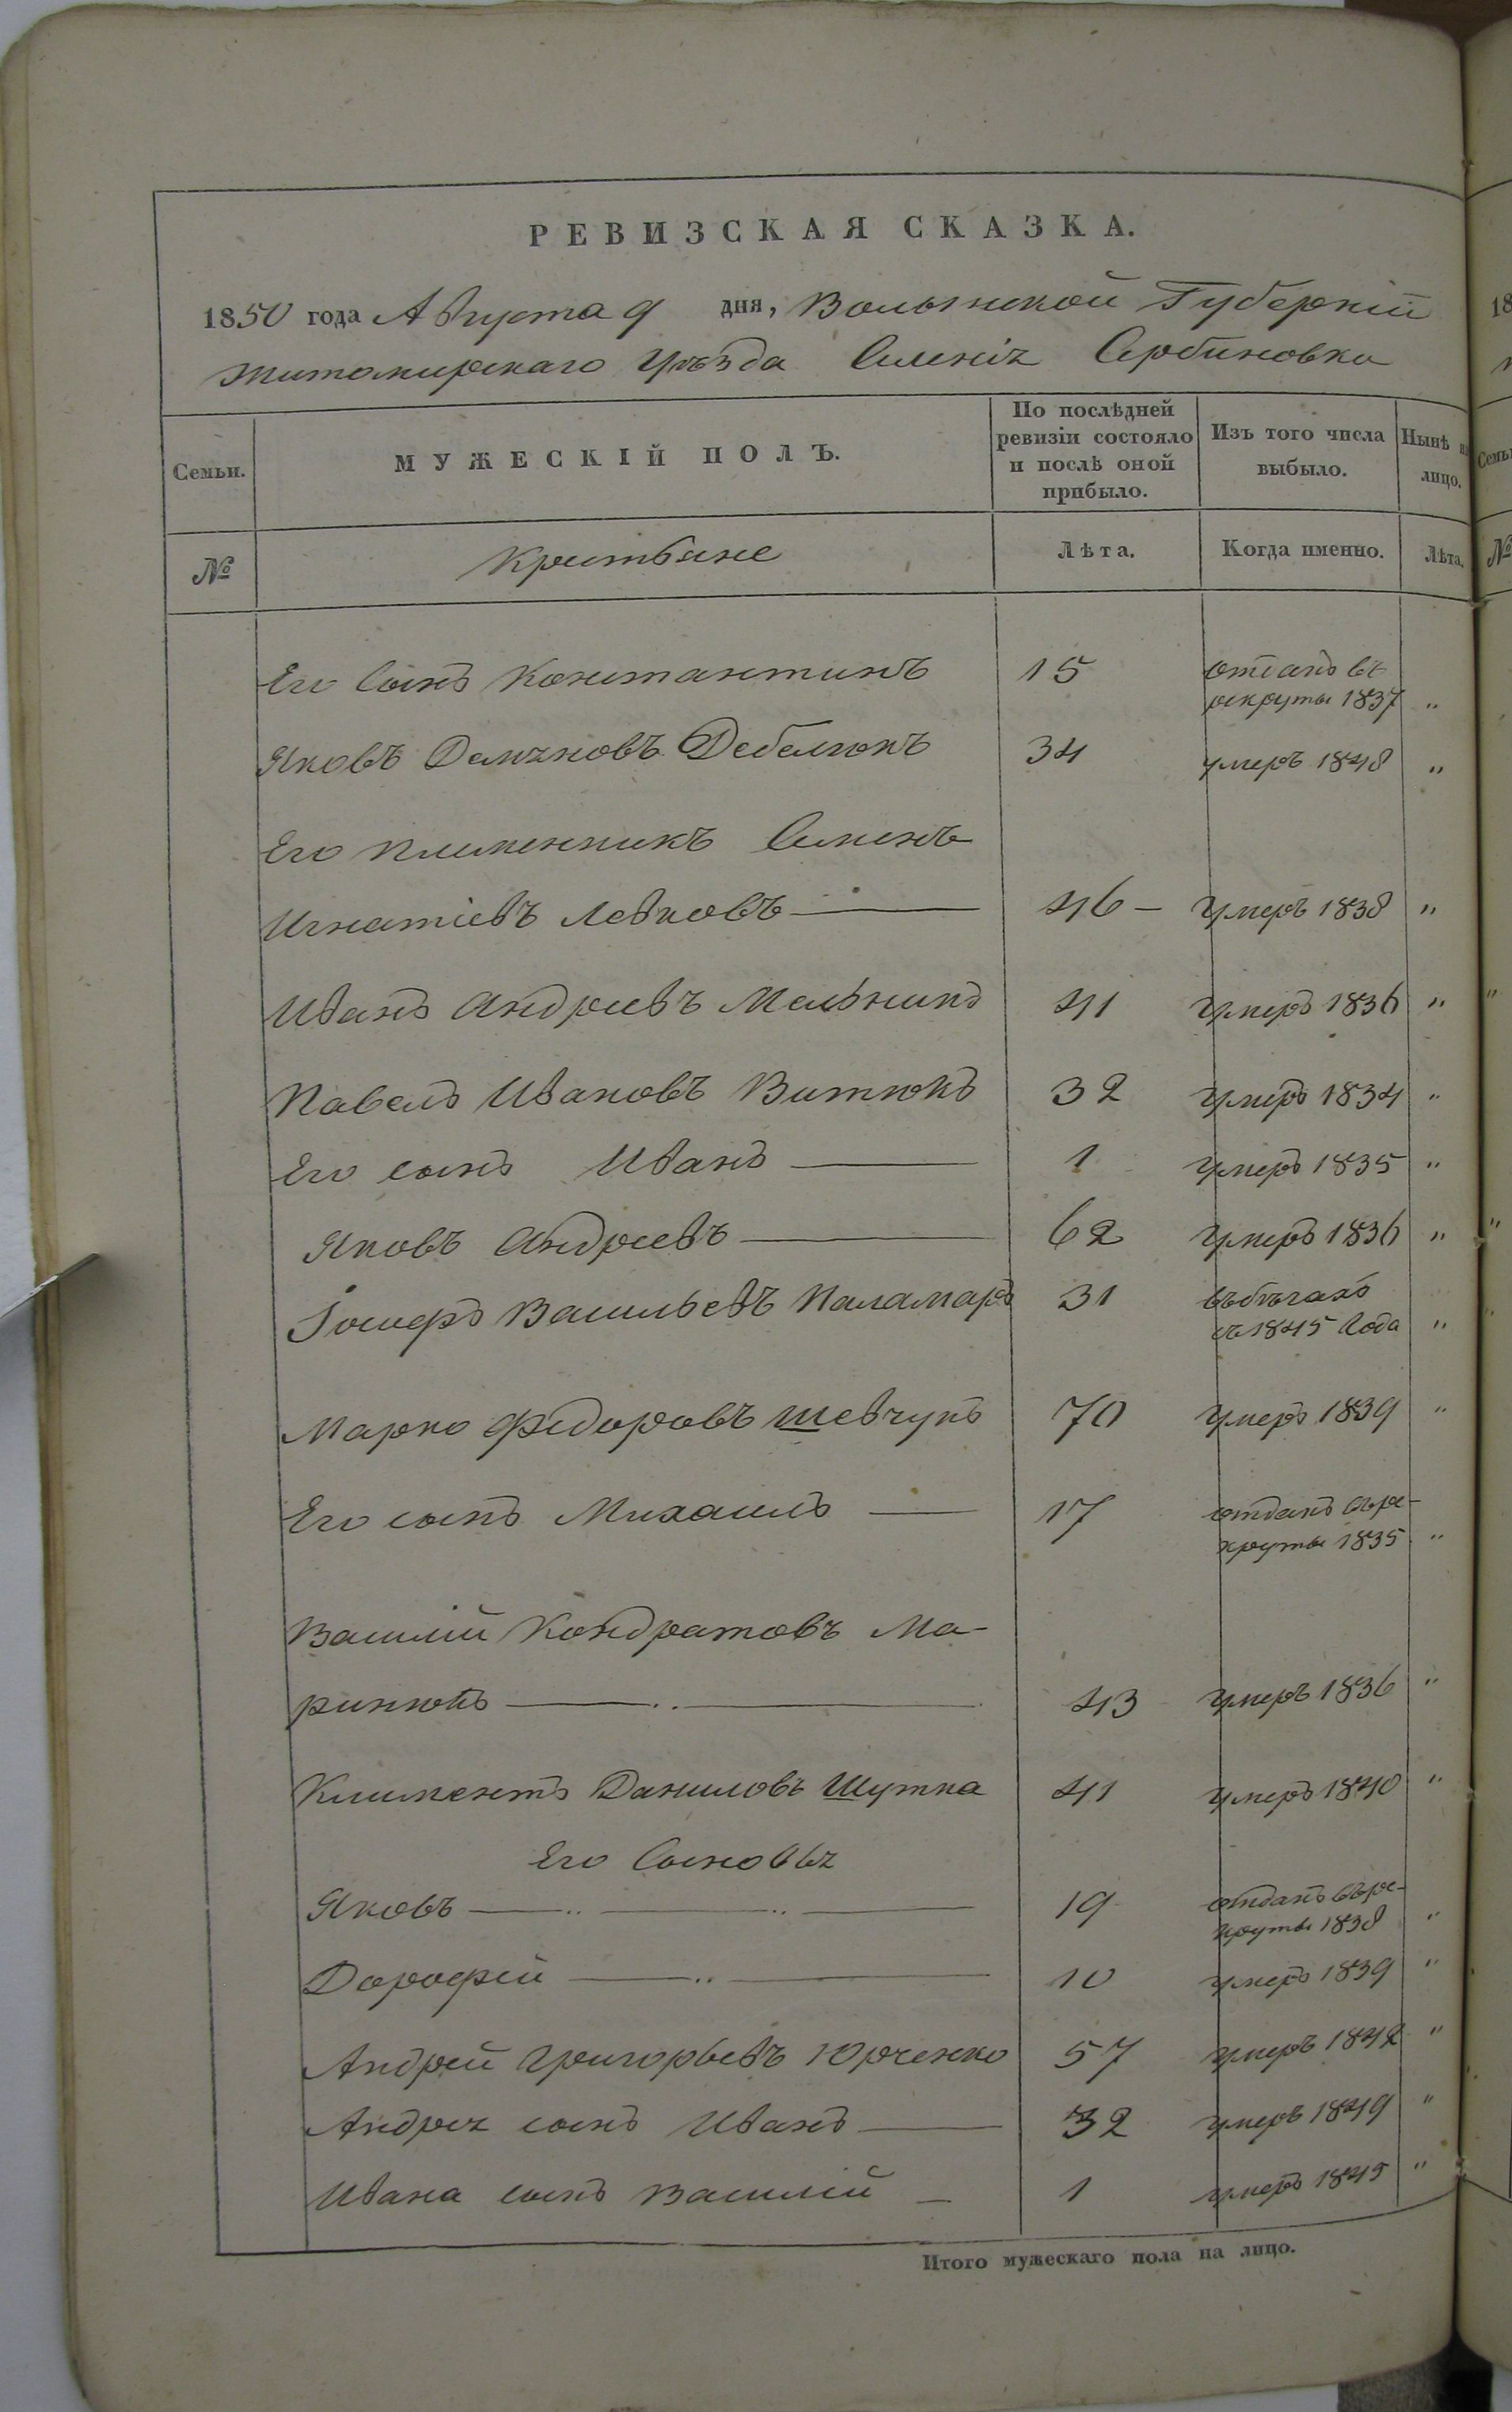 РЕВИЗСКАЯ СКАЗКА.
1850 года Августа 9 дня, Волынской Губерніи
Житомирскаго Уѣзда Сербиновка
Семьи. МУЖЕСКІЙ ПОЛЪ. По послѣдней ревизіи состояло и послѣ оной прибыло. Изъ того числа выбыло. Нынѣ на лицо.
№ Крестьяне Лѣта. Когда именно. Лѣта.
Его Сынъ Константинъ 15 отданъ въ
рекруты 1837 "
Яковъ Демяновъ Дебелюкъ 34 умеръ 1848 "
Его племенникъ Семенъ
Игнатіевъ Левковъ 46 — умеръ 1838 "
Иванъ Андреевъ Мельникъ 41 умеръ 1836 "
Павелъ Ивановъ Витюкъ 32 умеръ 1834 "
Его сынъ Иванъ 1 умеръ 1835 "
Яковъ Андреевъ 62 умеръ 1836 "
Іосифъ Васильевъ Паламаръ 31 въ бѣгахъ
съ 1845 Года "
Марко Федоровъ Шевчукъ 70 умеръ 1839 "
Его сынъ Михаилъ 17 отданъ въ ре-
круты 1835 "
Василій Кондратовъ Ма-
ринюкъ 43 умеръ 1836 "
Климентъ Даниловъ Шутка 41 умеръ 1840 "
Его Сыновья
Яковъ 19 отданъ въ ре-
круты 1838 "
Дорофей 10 умеръ 1839 "
Андрей Григорьевъ Юрченко 57 умеръ 1842 "
Андрея сынъ Иванъ 32 умеръ 1849 "
Ивана сынъ Василій 1 умеръ 1845 "
Итого мужескаго пола на лицо.